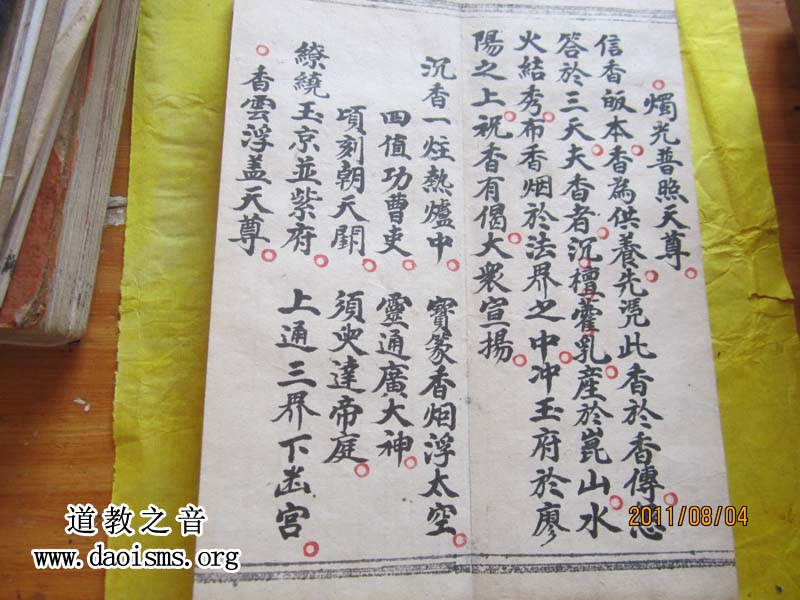 燭光普照天尊
信香皈本香為供養先憑此香於香傳
答於三天夫香者沉檀藿乳産於崑山水
火結秀布香烟於法界之中冲玉府於廖
陽之上祝香有偈大衆宣揚
沉香一炷熱爐中 寳篆香烟浮太空
四值功曹吏 靈通廣大神
頃刻朝天闕 須臾達帝庭
繚繞玉京並紫府 上通三界下幽宫
香雲浮盖天尊
2011/08/04
道教之音
www.daoisms.org